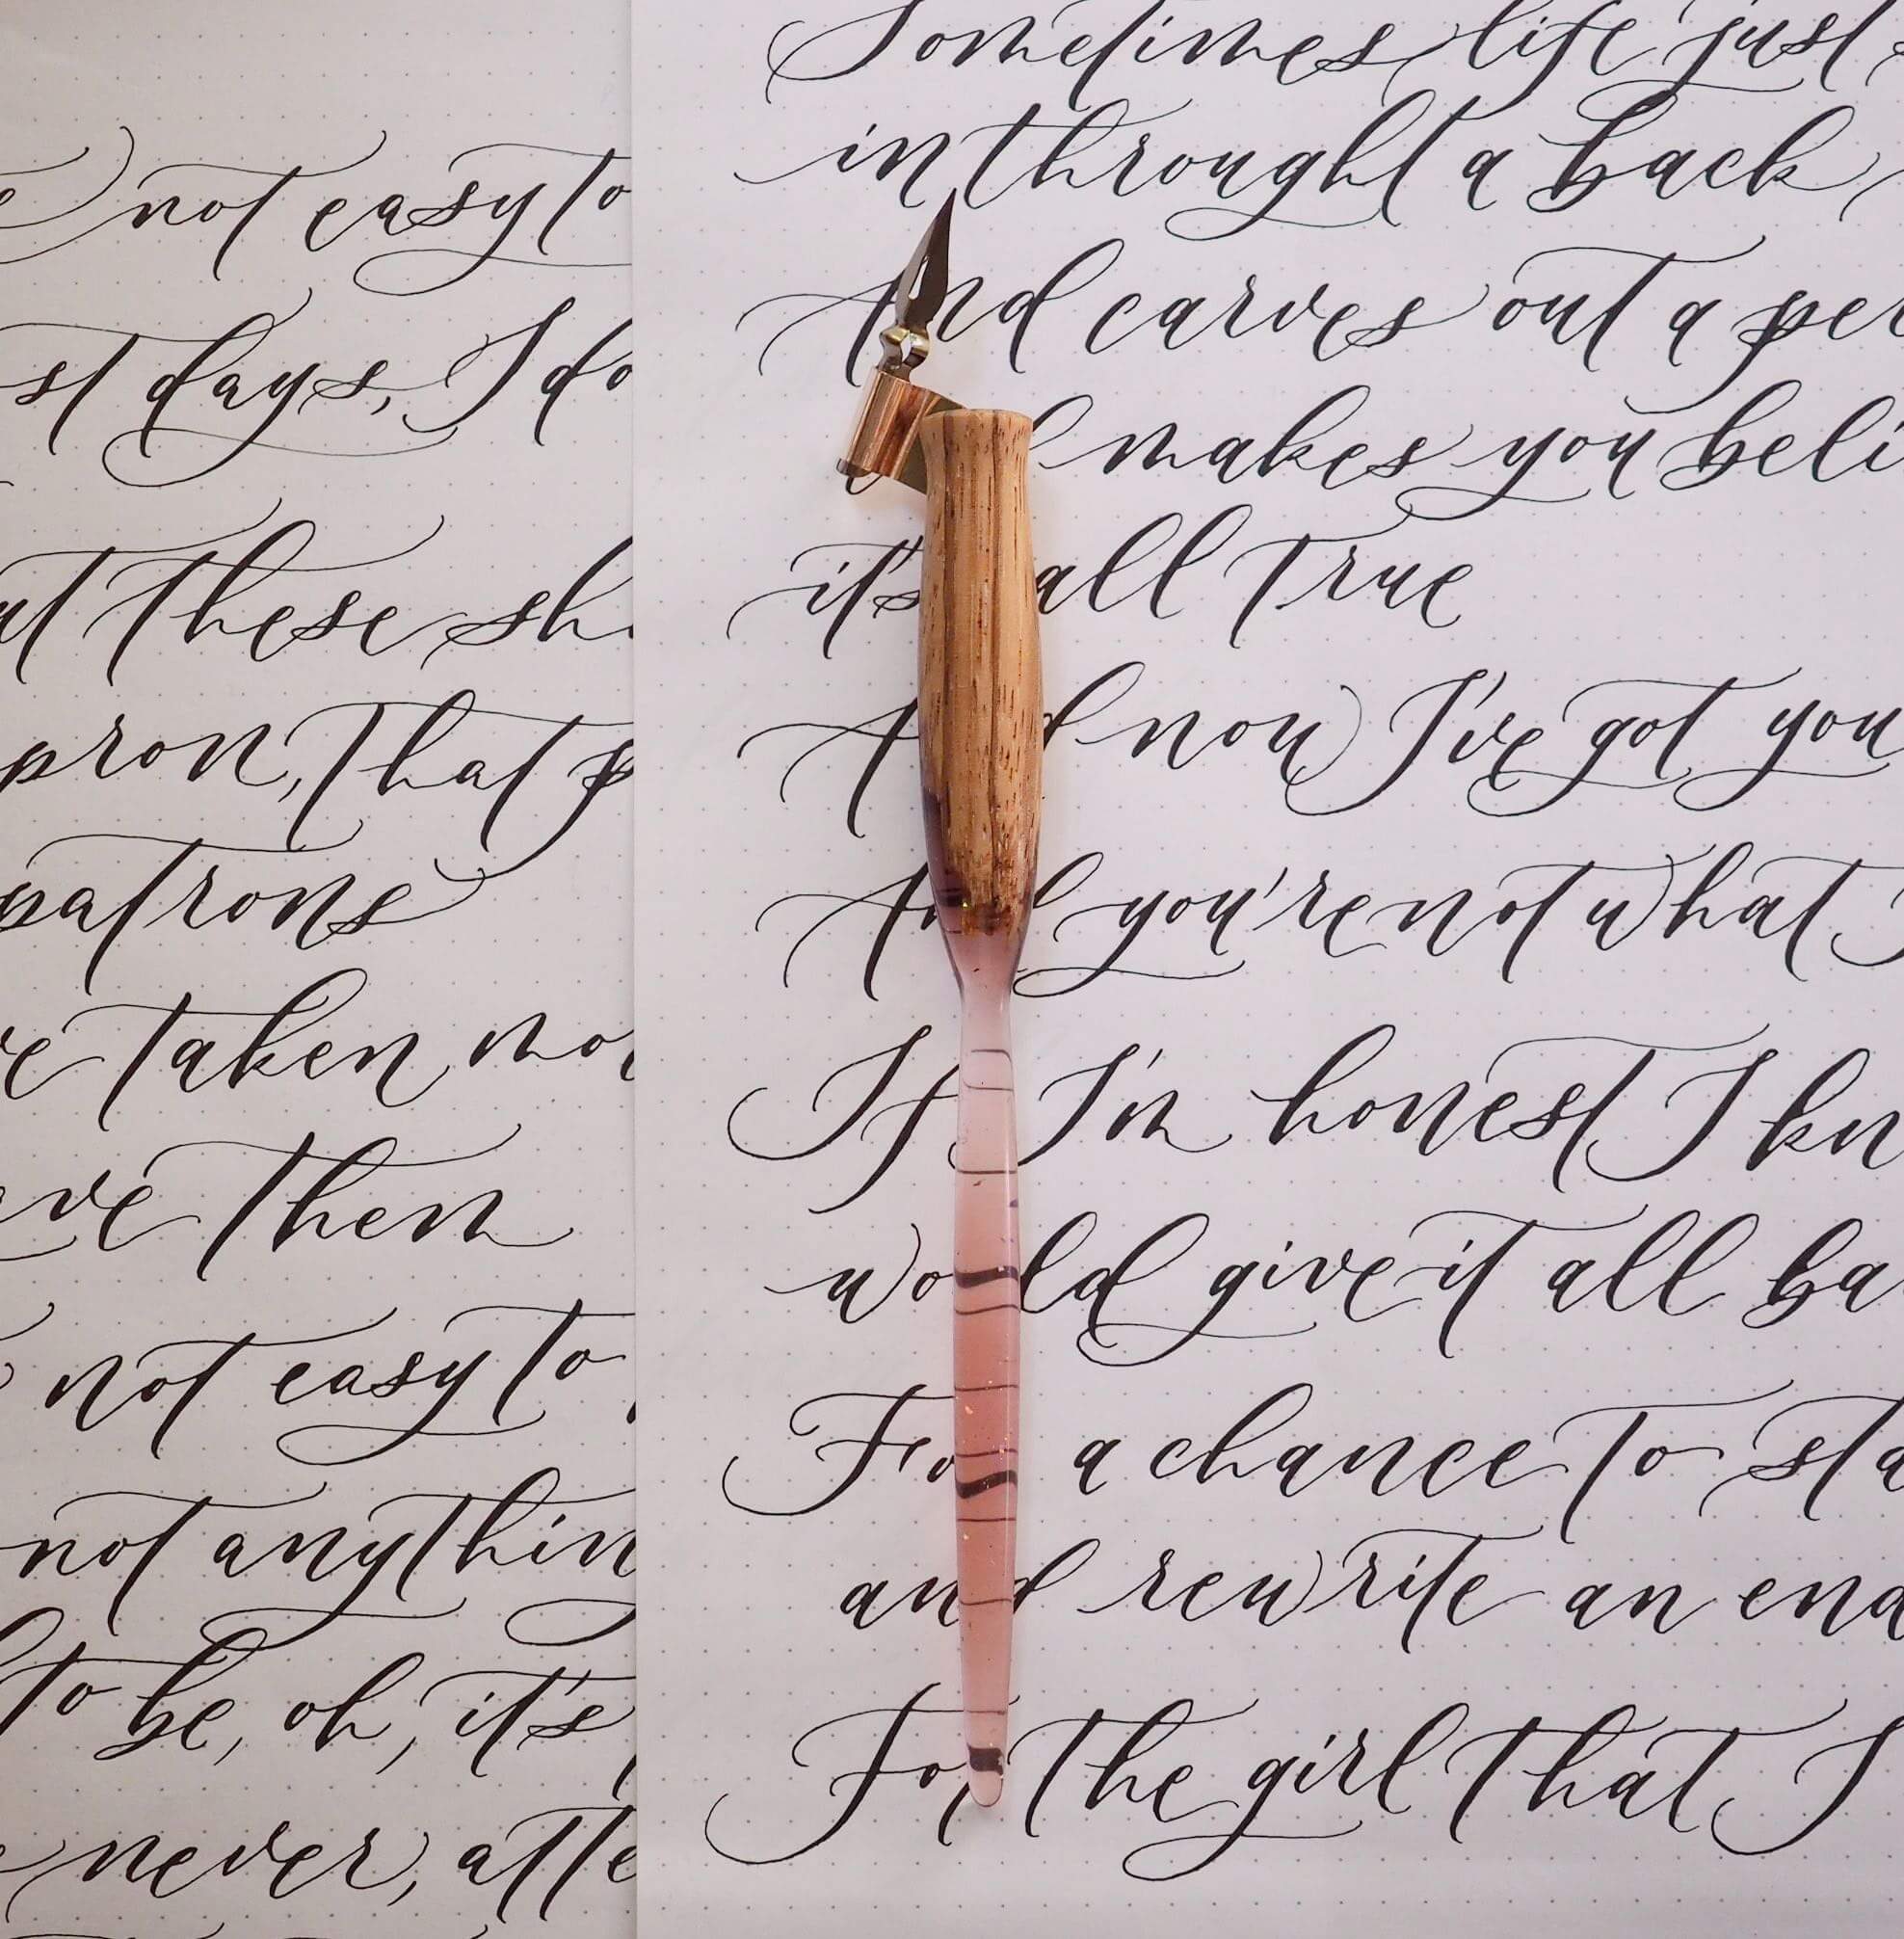 not easy to
st days, I do
these
pron, that
patrons
taken
then
not easy to
not anythin
to be, oh, it's
never, atte
Sometimes life just
in throught a back
And carves out a per
makes you beli
it's all true
And now I've got you
And you're not what I
If I'm honest I kn
would give it all ba
For a chance to sta
and rewrite an end
For the girl that I